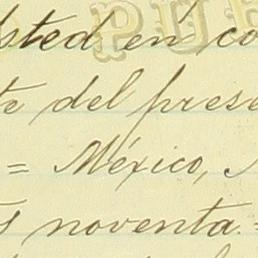 usted en co
te del prese
= México,
s noventa =